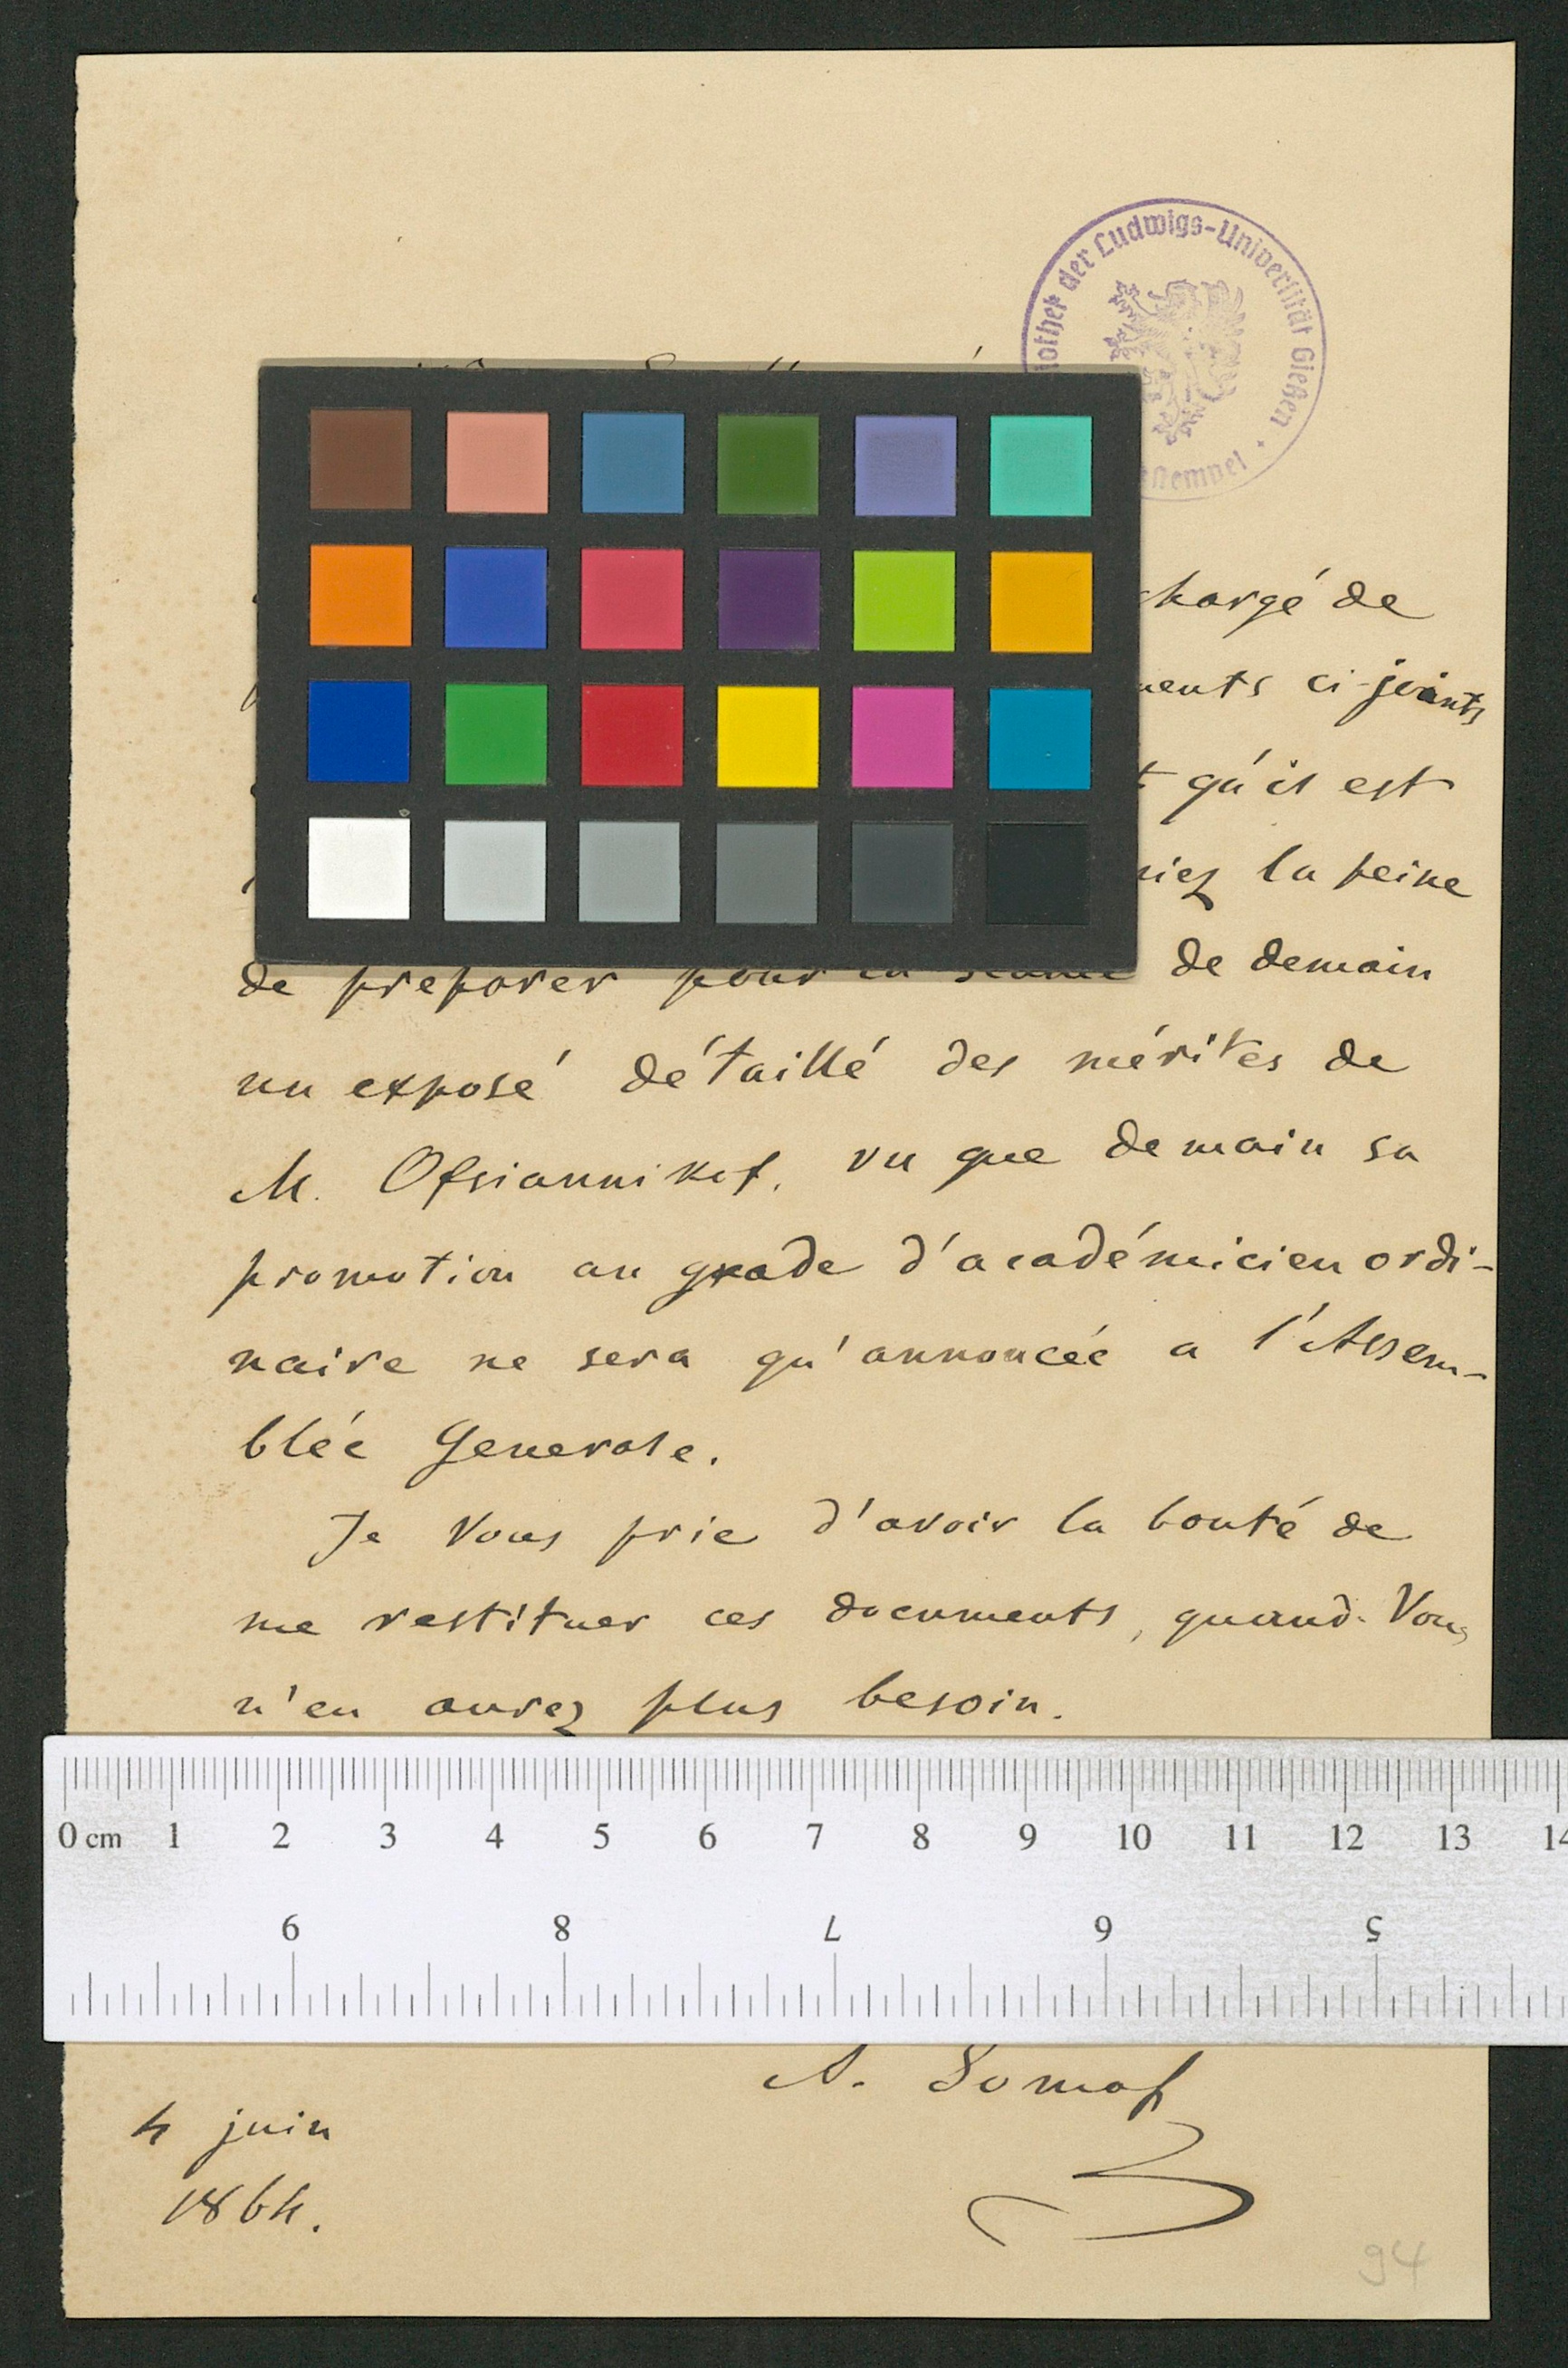 der Ludwigs-Universität Gießen
chargé de
ci-joints
qu'il est
la peine
de preparer pour la séance de demain
un exposé détaillé des mérites de
M. Ofsiannikof, vu que demain sa
promotion au grade d'académicien ordi-
naire ne sera qu'annoncée a l'Assem-
blée Generale.
Je Vous prie d'avoir la bonté de
me restituer ces documents, quand Vous
n'en aurez plus besoin.
0 cm 1 2 3 4 5 6 7 8 9 10 11 12 13 14
9 8 7 6 5
A. Somof
4 juin
1864.
94